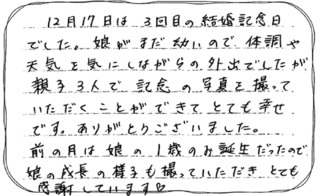 12月17日は3回目の結婚記念日
でした。娘がまだ幼いので、体調や
天気を気にしながらの外出でしたが
親子3人で記念の写真を撮って
いただくことができて、とても幸せ
です。ありがとうございました。
前の月は娘の1歳のお誕生だったので
娘の成長の様子も撮っていただきとても
感謝しています♡